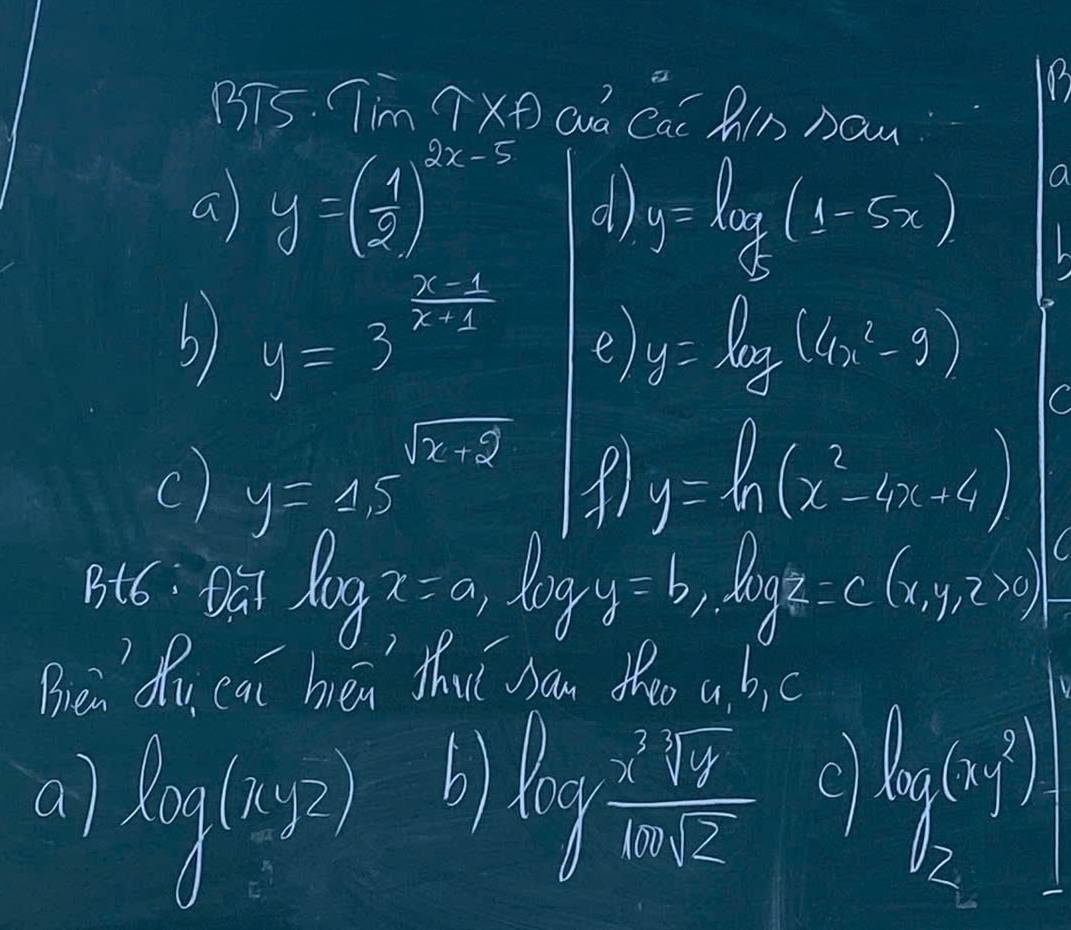 BT5. Tìm TXĐ của các h/s sau
a) y = (1/2)^(2x-5)
b) y = 3^((x-1)/(x+1))
c) y = 1,5^(√(x+2))
d) y = log_5 (1-5x)
e) y = log (4x²-9)
f) y = ln(x²-4x+4)
Bt6: Đặt log x = a, log y = b, log z = c (x,y,z>0)
Biển thị các biển thức sau theo a, b, c
a) log(xyz)
b) log (x³ ∛y)/(100√z)
c) log_z (xy²)